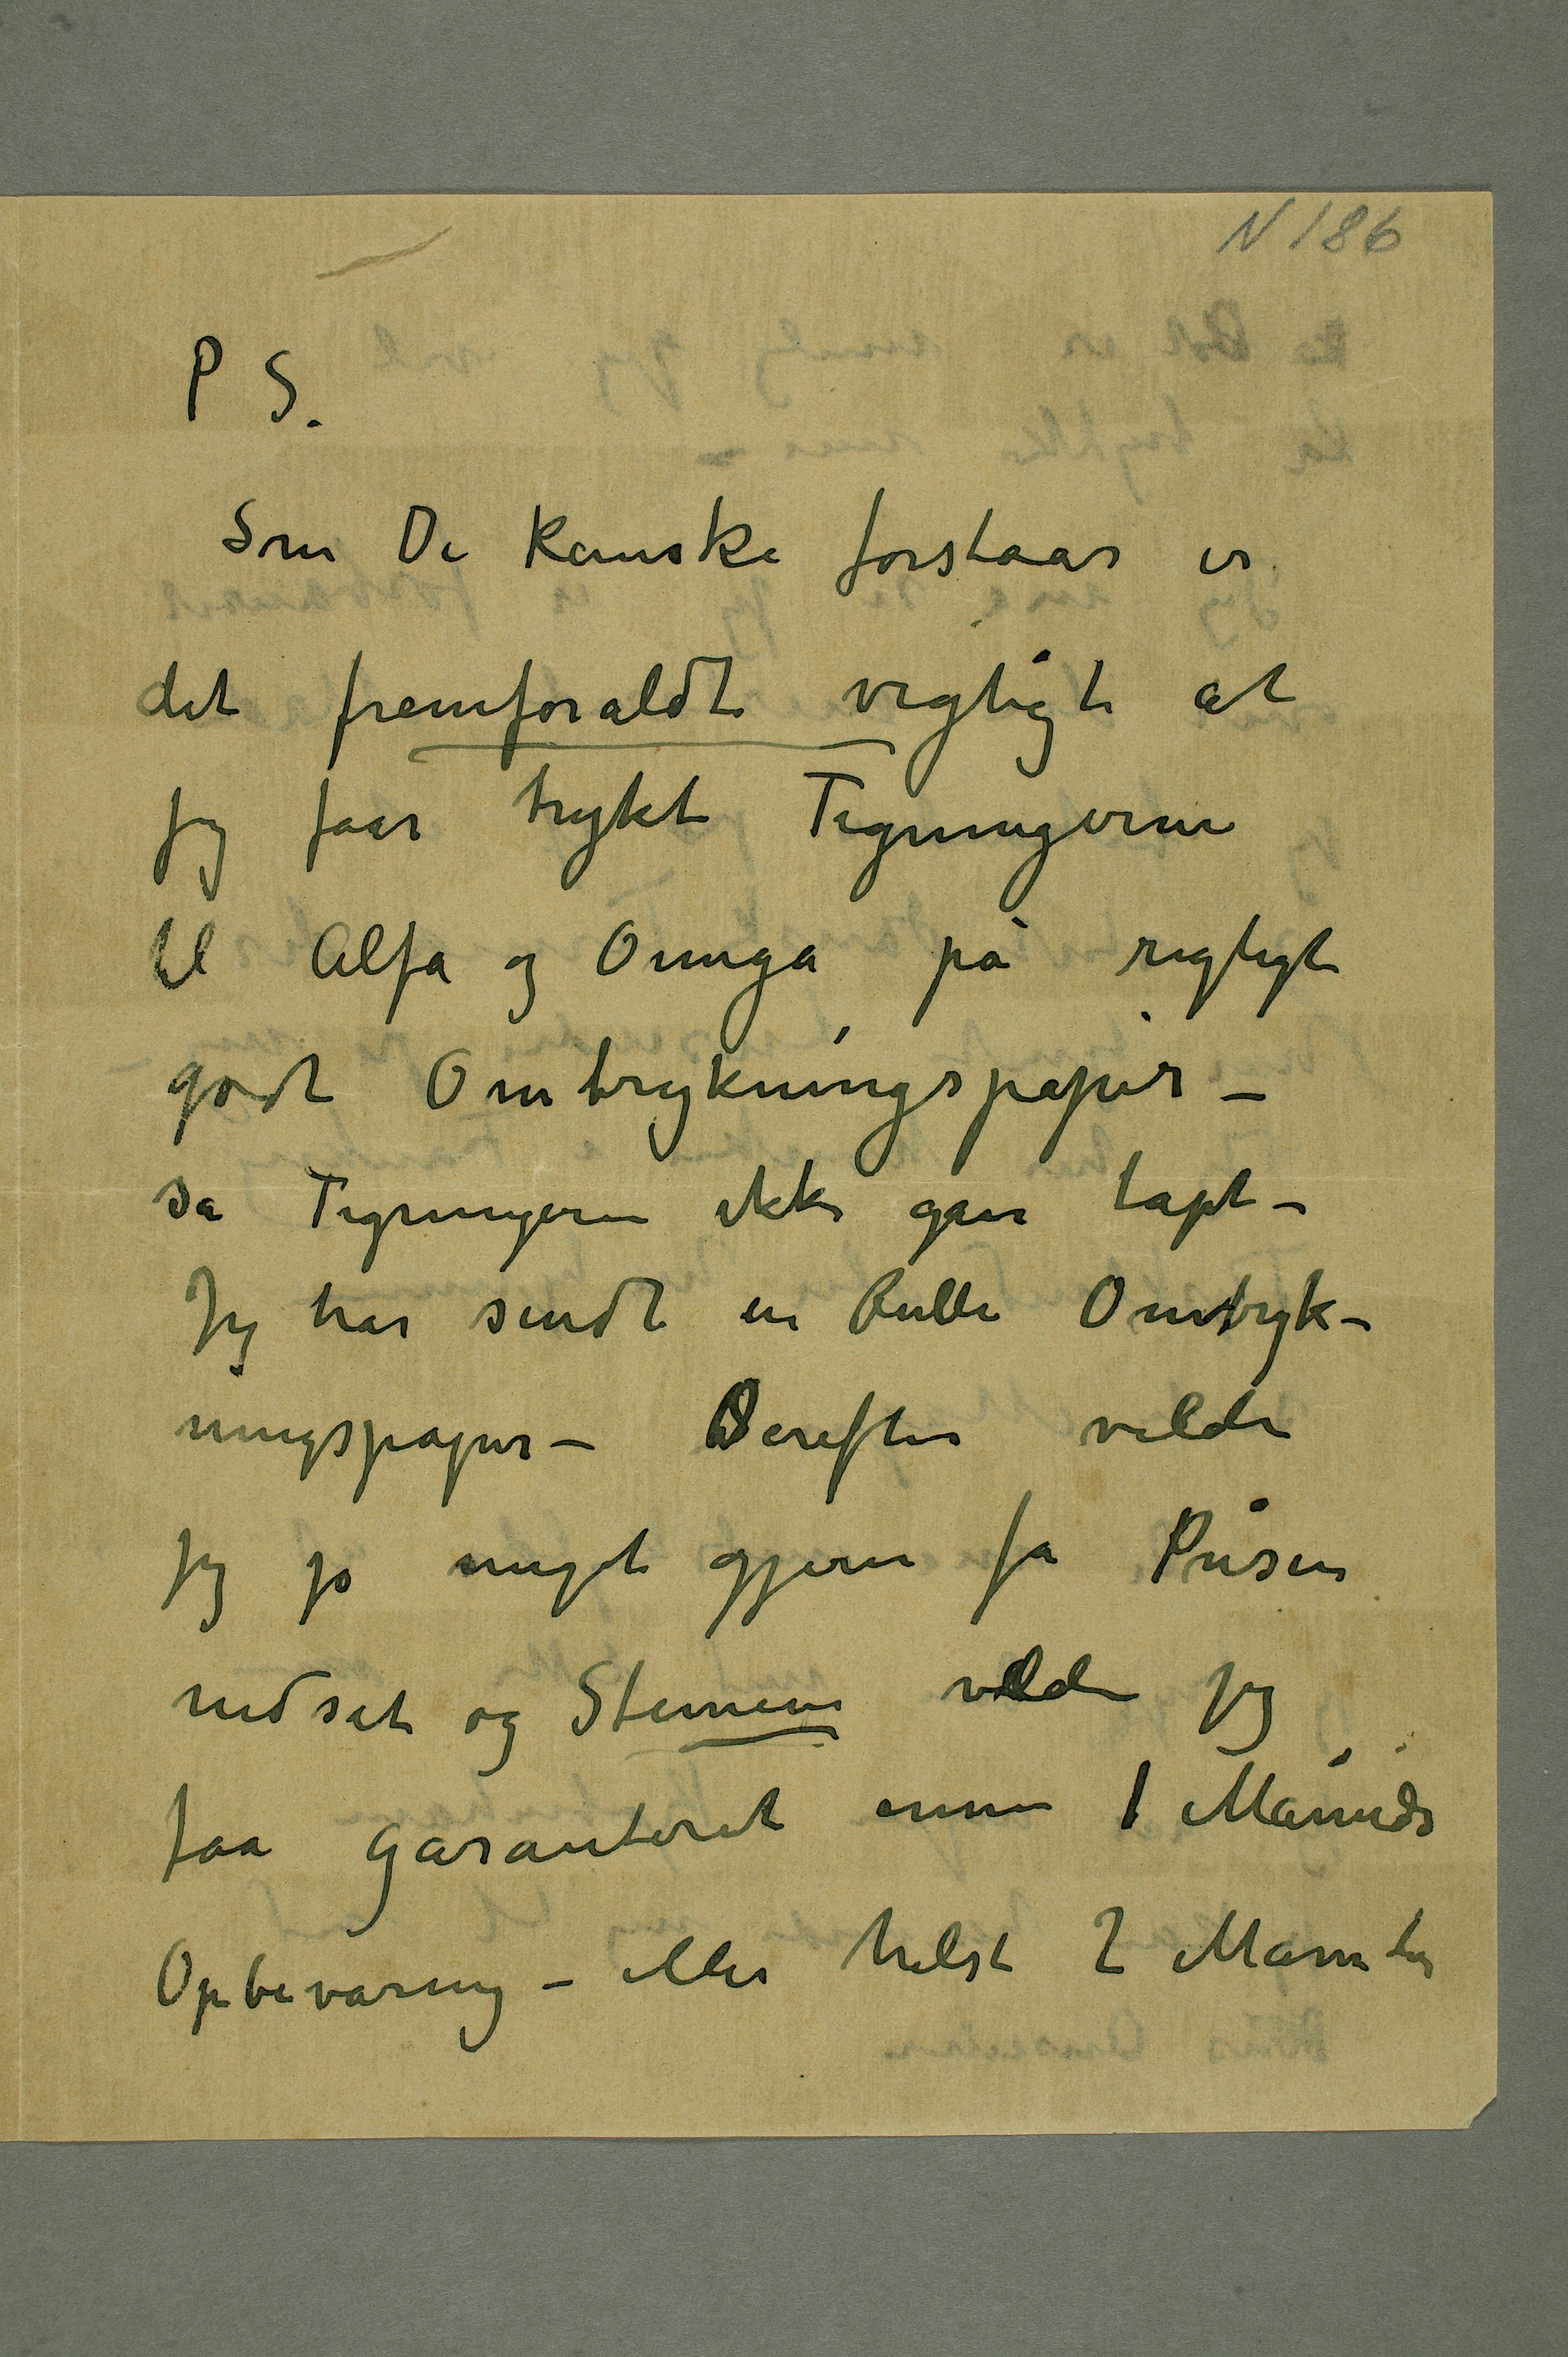 N 186
P S.
Som De kanske forstaar er
det fremforaldt vigtigt at
jeg faar trykt Tegningerne
til Alfa og Omega på rigtigt
godt Omtrykningspapir –
så Tegningerne ikke gaar tapt –
Jeg har sendt en Rulle Omtryk-
ningspapir – Derefter vilde
jeg jo meget gjerne få Prisen
nedsat og Stenene vilde jeg
faa garanteret ennu 1 Måneds
Opbevaring – eller helst 2 Måneder